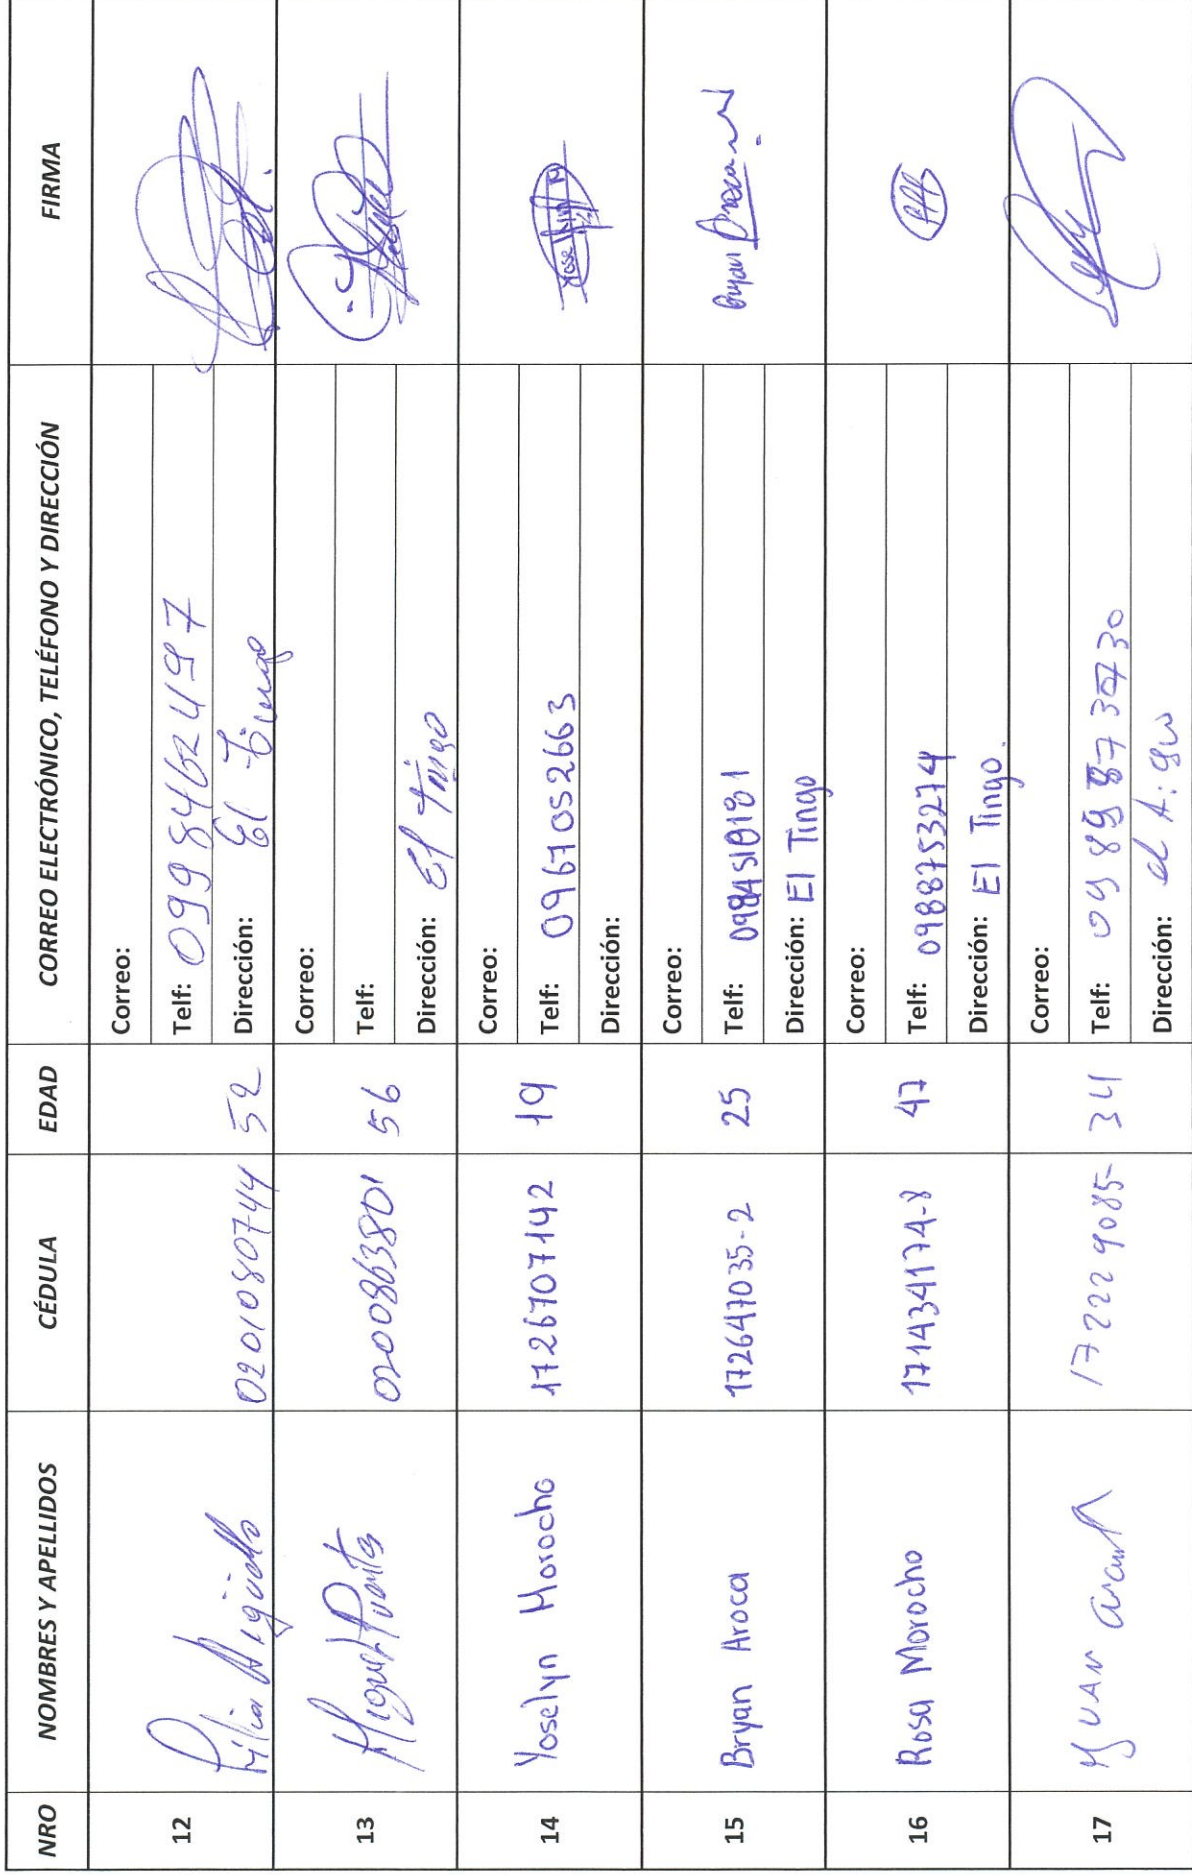 NRO NOMBRES Y APELLIDOS CÉDULA EDAD CORREO ELECTRÓNICO, TELÉFONO Y DIRECCIÓN FIRMA
12 Argüello 0201080744 52
Correo:
Telf: 0998462497
Dirección: El Tingo
13 Miguel Puentes 0200863801 56
Correo:
Telf:
Dirección: El Tingo
14 Yoselyn Morocho 1726707142 19
Correo:
Telf: 0967052663
Dirección:
15 Bryan Aroca 172647035-2 25 Bryan
Correo:
Telf: 0984518181
Dirección: El Tingo
16 Rosa Morocho 171434174-8 47
Correo:
Telf: 0988753274
Dirección: El Tingo.
17 JUAN 1722229085 34
Correo:
Telf:
Dirección: